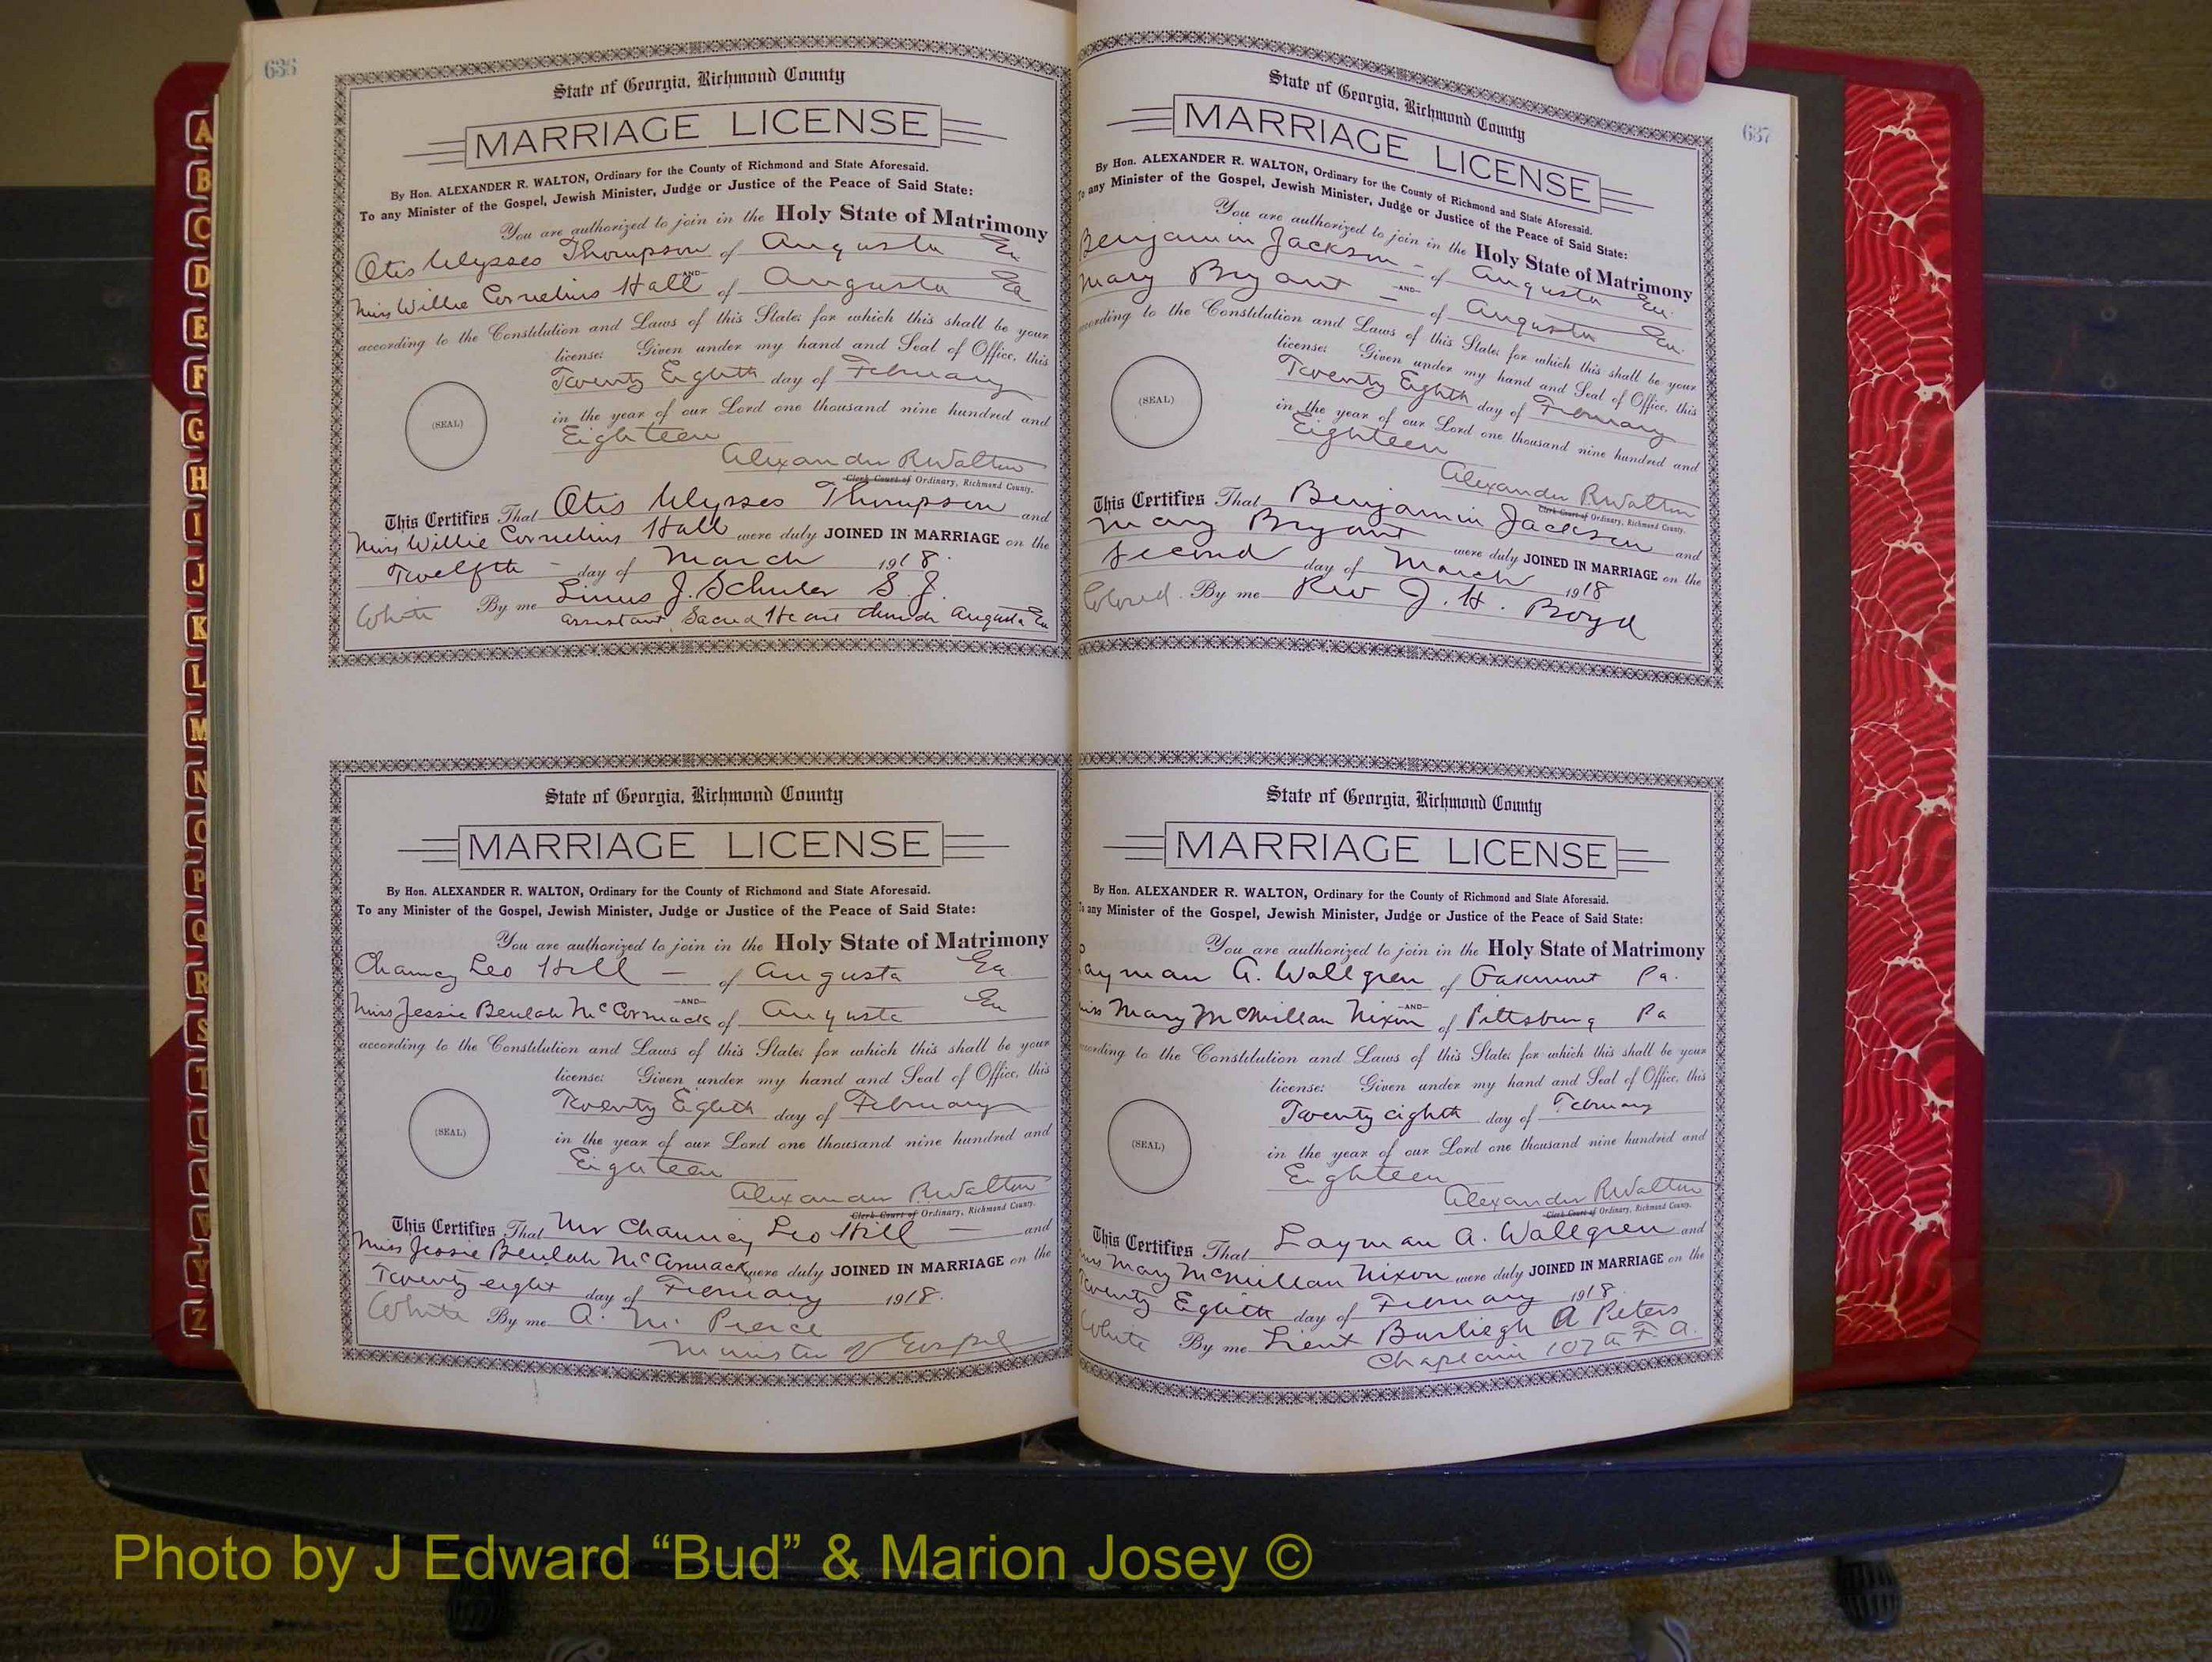 636
State of Georgia, Richmond County
MARRIAGE LICENSE
By Hon. ALEXANDER R. WALTON, Ordinary for the County of Richmond and State Aforesaid.
To any Minister of the Gospel, Jewish Minister, Judge or Justice of the Peace of Said State:
You are authorized to join in the Holy State of Matrimony
Otis Ulysses Thompson of Augusta Ga
-AND-
Miss Willie Cornelius Hall of Augusta Ga
according to the Constitution and Laws of this State; for which this shall be your
license: Given under my hand and Seal of Office, this
Twenty Eighth day of February
(SEAL)
in the year of our Lord one thousand nine hundred and
Eighteen
Alexander R Walton
Clerk Court of Ordinary, Richmond County.
This Certifies That Otis Ulysses Thompson and
Miss Willie Cornelius Hall were duly JOINED IN MARRIAGE on the
Twelfth - day of March 1918.
White By me Linus J. Schuler S. J.
assistant Sacred Heart Church Augusta Ga
State of Georgia, Richmond County
MARRIAGE LICENSE
By Hon. ALEXANDER R. WALTON, Ordinary for the County of Richmond and State Aforesaid.
To any Minister of the Gospel, Jewish Minister, Judge or Justice of the Peace of Said State:
You are authorized to join in the Holy State of Matrimony
Chauncy Leo Hill - of Augusta Ga
-AND-
Miss Jessie Beulah McCormack of Augusta Ga
according to the Constitution and Laws of this State; for which this shall be your
license: Given under my hand and Seal of Office, this
Twenty Eighth day of February
(SEAL)
in the year of our Lord one thousand nine hundred and
Eighteen
Alexander R Walton
Clerk Court of Ordinary, Richmond County.
This Certifies That Mr Chauncy Leo Hill - and
Miss Jessie Beulah McCormack were duly JOINED IN MARRIAGE on the
Twenty eight day of February 1918.
White By me A. M. Pierce
Minister of Gospel
637
State of Georgia, Richmond County
MARRIAGE LICENSE
By Hon. ALEXANDER R. WALTON, Ordinary for the County of Richmond and State Aforesaid.
To any Minister of the Gospel, Jewish Minister, Judge or Justice of the Peace of Said State:
You are authorized to join in the Holy State of Matrimony
Benjamin Jackson - of Augusta Ga.
-AND-
Mary Bryant - of Augusta Ga.
according to the Constitution and Laws of this State; for which this shall be your
license: Given under my hand and Seal of Office, this
Twenty Eighth day of February
(SEAL)
in the year of our Lord one thousand nine hundred and
Eighteen
Alexander R Walton
Clerk Court of Ordinary, Richmond County.
This Certifies That Benjamin Jackson and
Mary Bryant were duly JOINED IN MARRIAGE on the
Second day of March 1918
Colored. By me Rev J. H. Boyd
State of Georgia, Richmond County
MARRIAGE LICENSE
By Hon. ALEXANDER R. WALTON, Ordinary for the County of Richmond and State Aforesaid.
To any Minister of the Gospel, Jewish Minister, Judge or Justice of the Peace of Said State:
You are authorized to join in the Holy State of Matrimony
Layman A. Wallgren of Oakmont Pa.
-AND-
Miss Mary McMillan Nixon of Pittsburg Pa
according to the Constitution and Laws of this State; for which this shall be your
license: Given under my hand and Seal of Office, this
Twenty eighth day of February
(SEAL)
in the year of our Lord one thousand nine hundred and
Eighteen
Alexander R Walton
Clerk Court of Ordinary, Richmond County.
This Certifies That Layman A. Wallgren and
Miss Mary McMillan Nixon were duly JOINED IN MARRIAGE on the
Twenty Eighth day of February 1918.
White By me Lieut Burliegh A Peters
Chaplain 107th F. A.
A
B
C
D
E
F
G
H
I
J
K
L
M
N
O
P
Q
R
S
T
U
V
W
Y
Z
Photo by J Edward “Bud” & Marion Josey ©